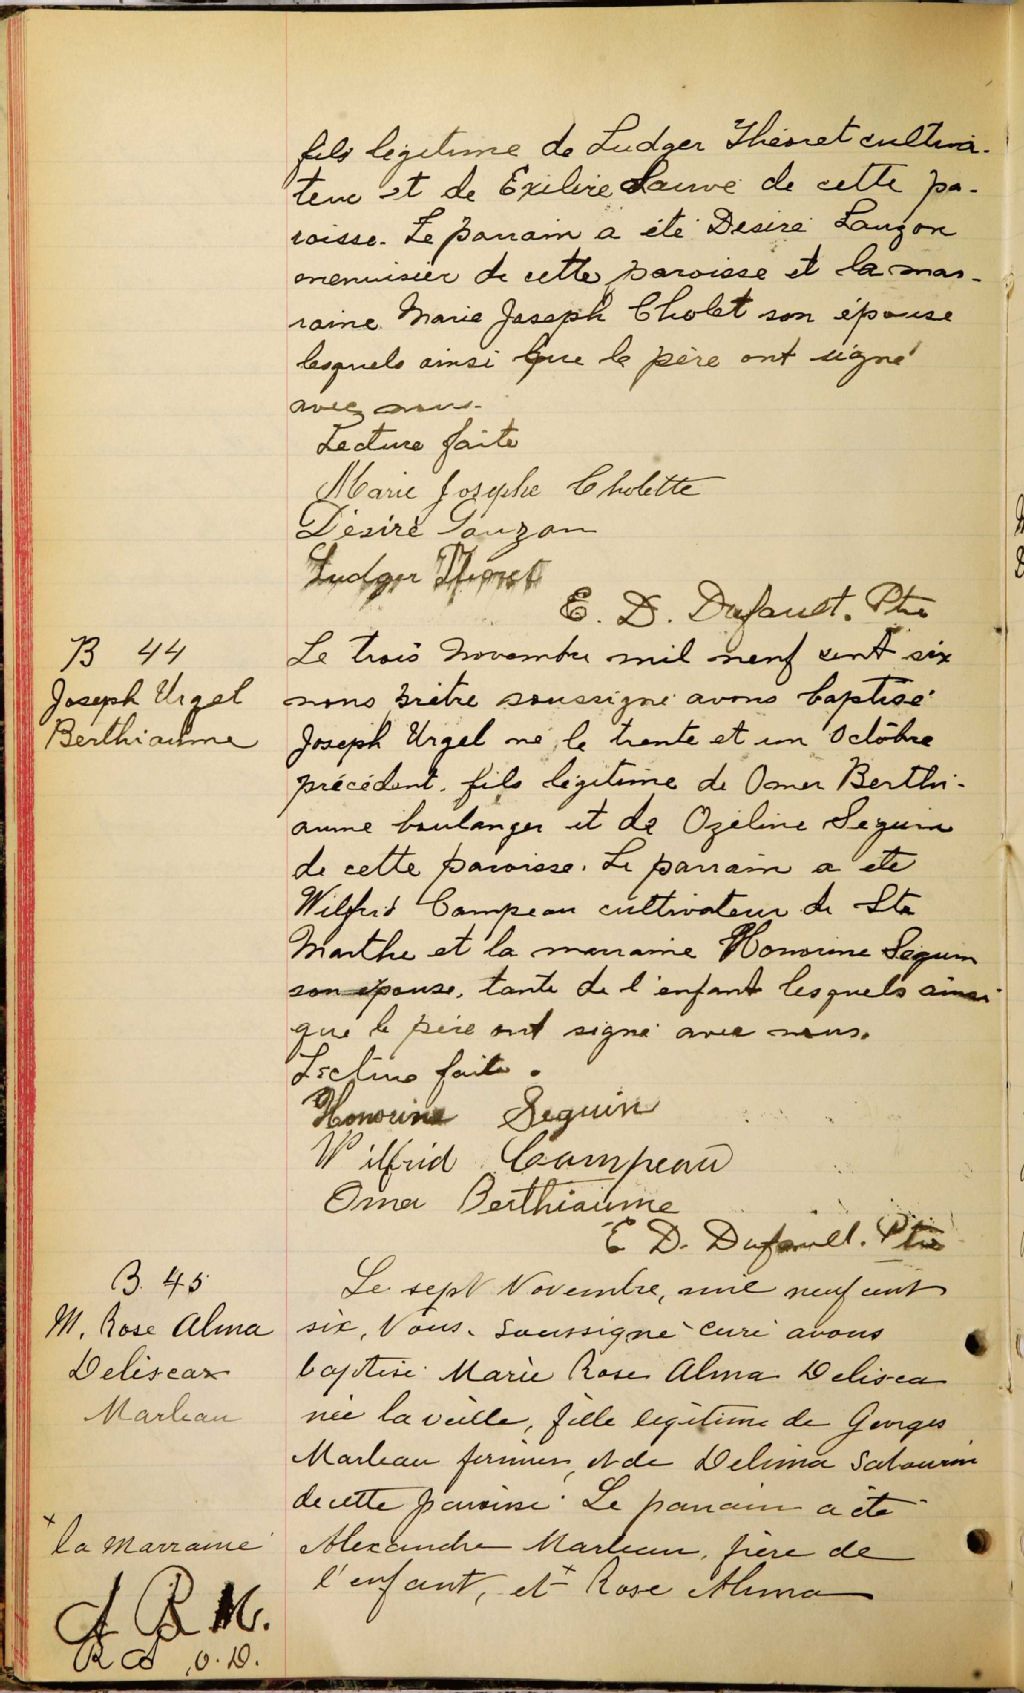 fils légitime de Ludger Théoret cultiva-
teur et de Exilire Sauvé de cette pa-
roisse. Le parrain a été Desiré Lauzon
menuisier de cette paroisse et la mar-
raine Marie Joseph Cholet son épouse
lesquels ainsi que le père ont signé
avec nous.
Lecture faite
Marie Josephe Cholette
Désiré Lauzon
Ludger Theoret
E. D. Dufault. Ptre
B 44
Joseph Urgel
Berthiaume
Le trois Novembre mil neuf cent six
nous prêtre soussigné avons baptisé
Joseph Urgel né le trente et un Octobre
précédent, fils légitime de Omer Berthi-
aume boulanger et de Ozéline Seguin
de cette paroisse. Le parrain a été
Wilfrid Campeau cultivateur de Ste
Marthe et la marraine Honorine Seguin
son épouse, tante de l'enfant lesquels ainsi
que le père ont signé avec nous.
Lecture faite.
Honorine Seguin
Wilfrid Campeau
Omer Berthiaume
E D. Dufault. Ptre
B. 45
M. Rose Alma
Deliscar
Marleau
Le sept Novembre, mil neuf cent
six, Nous. Soussigné curé avons
baptisé Marie Rose Alma Delisca
née la veille, fille légitime de Georges
Marleau fermier, et de Delima Sabourin
de cette paroisse. Le parrain a été
Alexandre Marleau, frère de
l'enfant, et x Rose Alma
x la marraine
A B M.
R A .O.D.